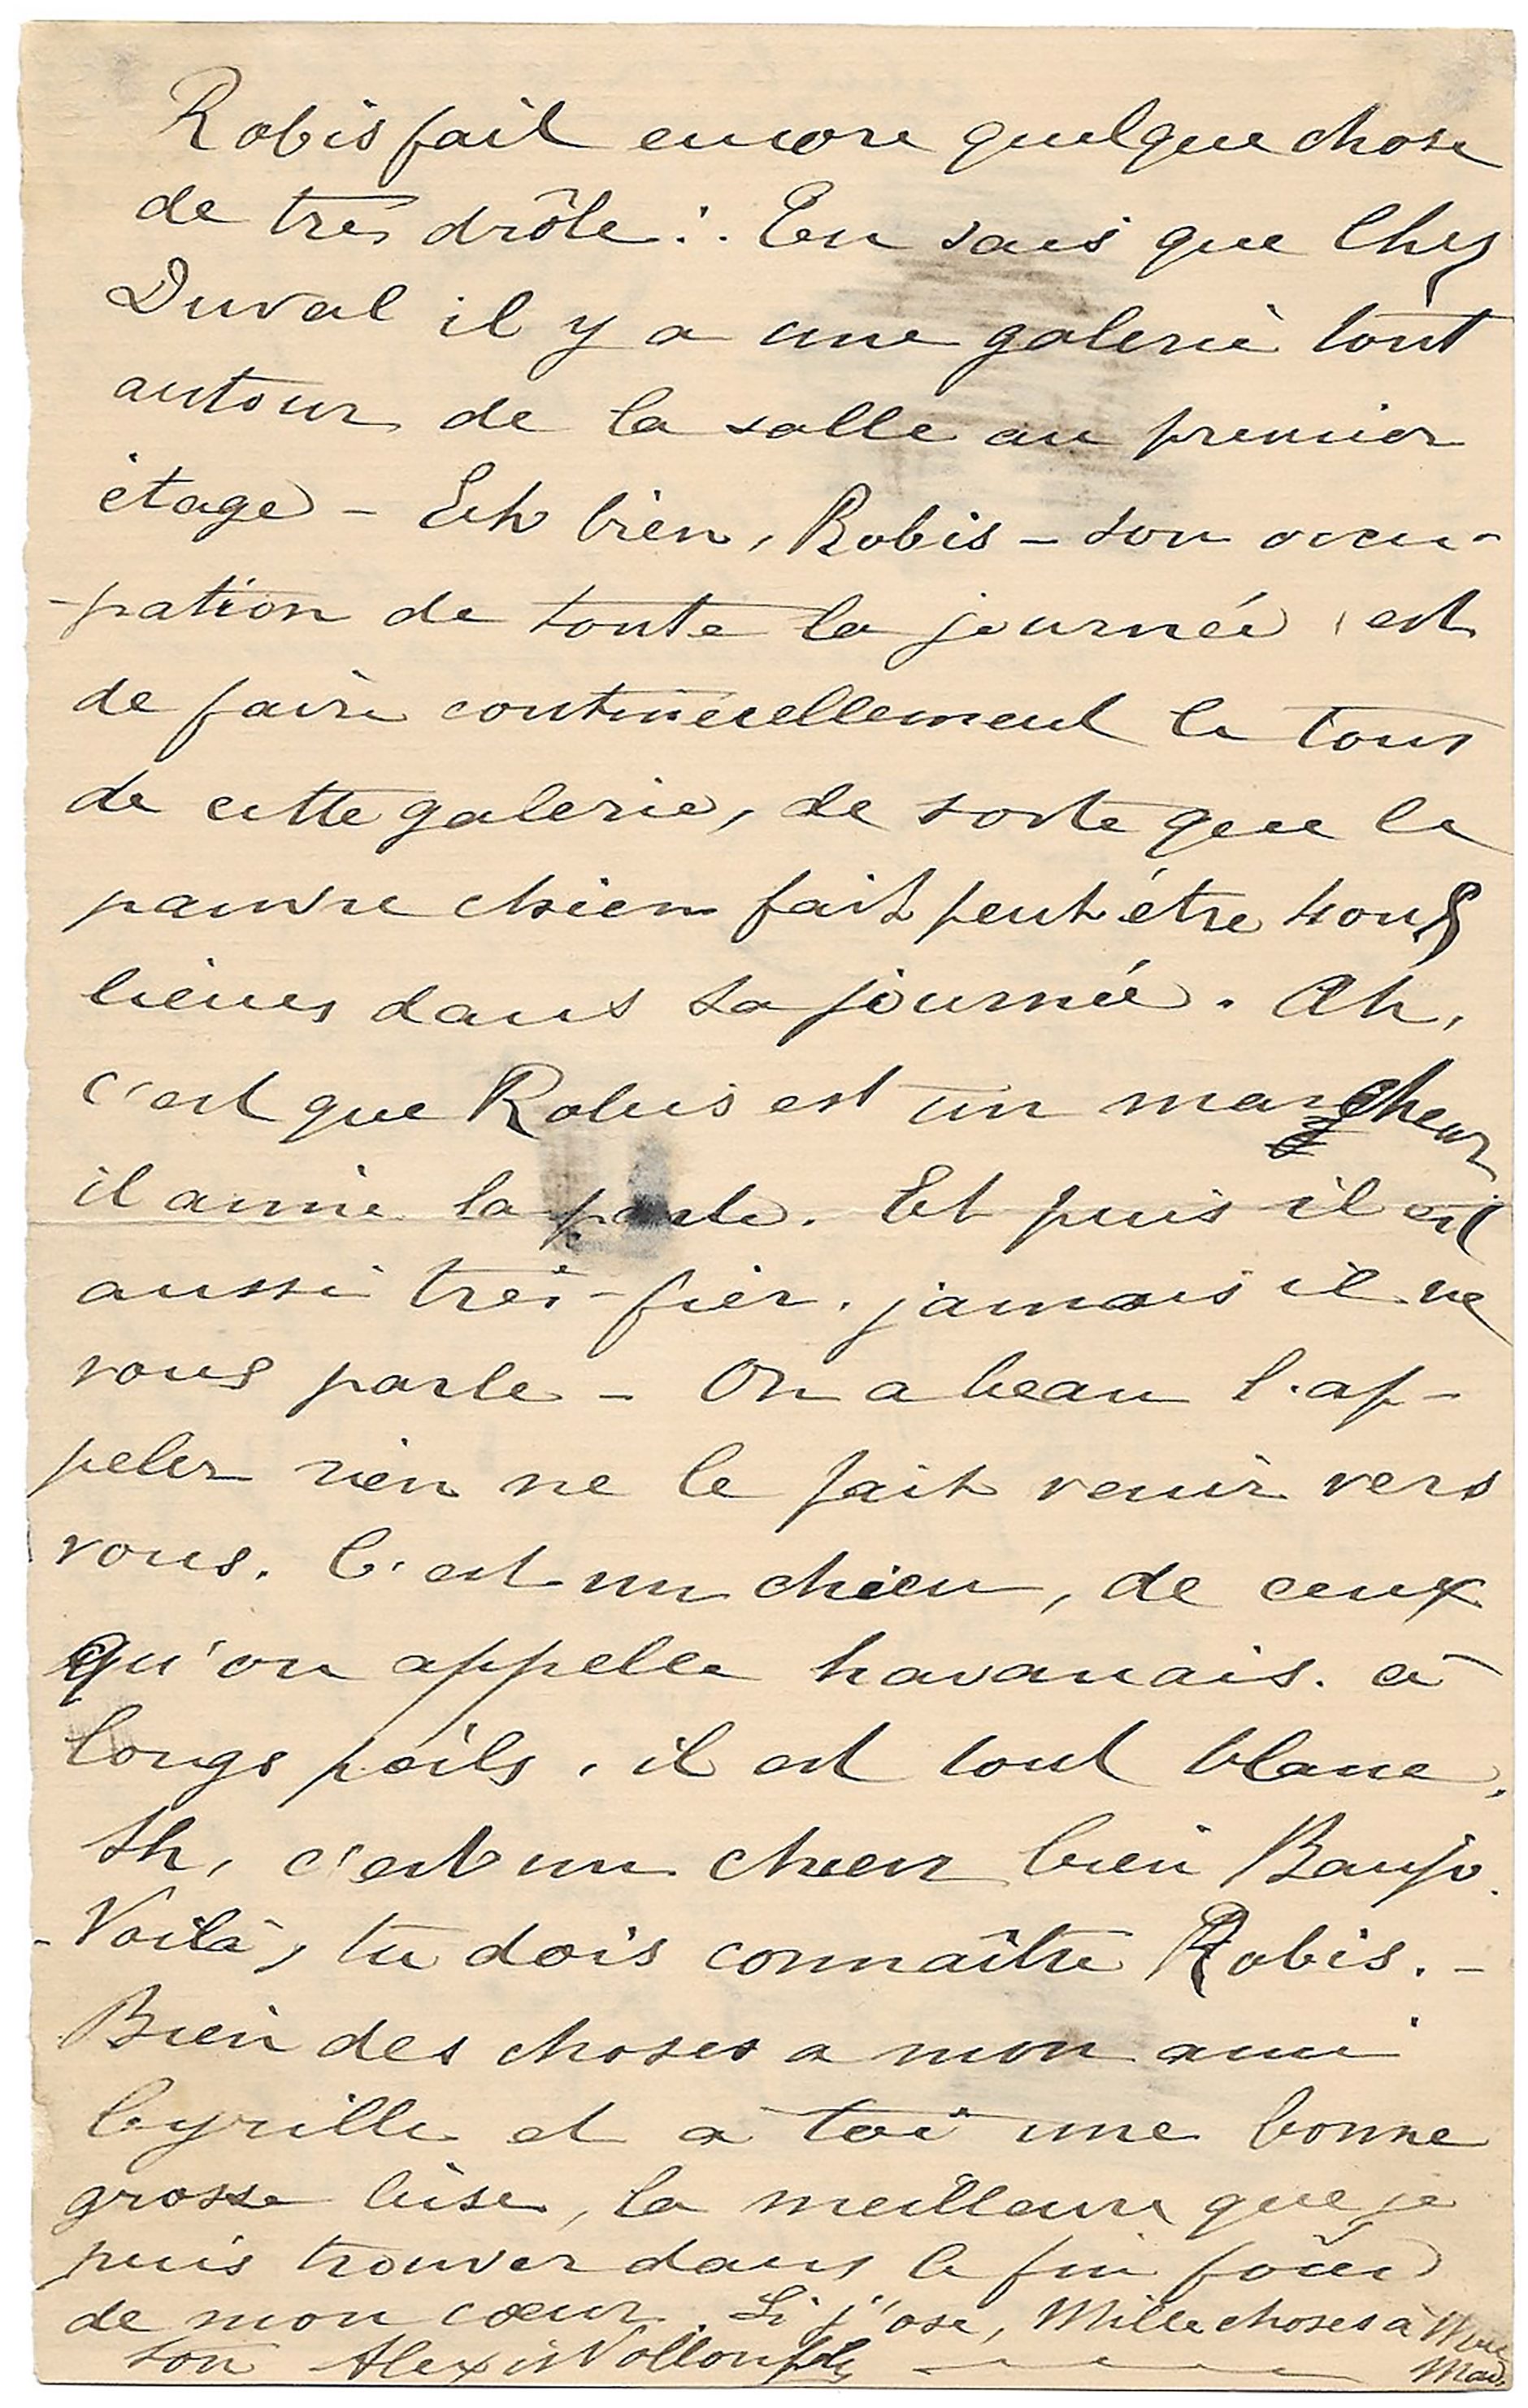 Robis fait encore quelque chose
de très drôle : . Tu sais que Chez
Duval il y a une galerie tout
autour de la salle au premier
étage - Eh bien, Robis - son occu-
-pation de toute la journée, est
de faire continuellement le tour
de cette galerie, de sorte que le
pauvre chien fait peut être
lieues dans sa journée. Ah,
c'est que Robis est un marcheur
il aime la. Et puis il est
aussi très-fier. jamais il ne
vous parle - On a beau l'ap-
peler rien ne le fait venir vers
vous. C'est un chien, de ceux
qu'on appelle havanais. à
longs poils, il est tout blanc.
Ah, c'est un chien bien
- Voilà, tu dois connaître Robis. -
Bien des choses a mon ami
Cyrille et a toi une bonne
grosse bise, la meilleure que je
puis trouver dans le fin fond
de mon cœur. Si j'ose, Mille choses à
ton Alexis Vollon fils